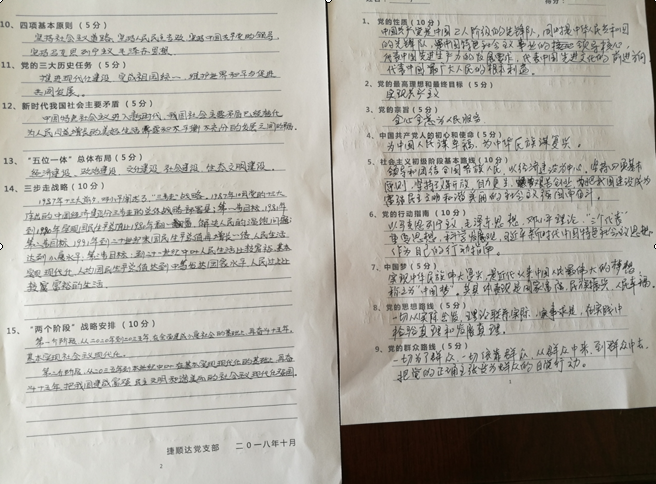 1、党的性质（10 分）
中国共产党是中国工人阶级的先锋队，同时是中国人民和中华民族
的先锋队，是中国特色社会主义事业的领导核心，
代表中国先进生产力的发展要求，代表中国先进文化的前进方向
代表中国最广大人民的根本利益。
2、党的最高理想和最终目标（5 分）
实现共产主义
3、党的宗旨（5 分）
全心全意为人民服务
4、中国共产党人的初心和使命（5 分）
为中国人民谋幸福，为中华民族谋复兴。
5、社会主义初级阶段基本路线（10 分）
领导和团结全国各族人民，以经济建设为中心，坚持四项基本
原则，坚持改革开放，自力更生
富强民主文明和谐美丽的社会主义现代化强国而奋斗。
6、党的行动指南（10 分）
以马克思列宁主义、毛泽东思想、邓小平理论、“三个代表”
重要思想、科学发展观、习近平新时代中国特色社会主义思想
作为自己的行动指南。
7、中国梦（10 分）
实现中华民族伟大复兴，是近代以来中国人民最伟大的梦想，
称之为“中国梦”，具体表现是国家富强，民族振兴，人民幸福。
8、党的思想路线（5 分）
一切从实际出发，理论联系实际，实事求是，在实践中
检验真理和发展真理。
9、党的群众路线（5 分）
一切为了群众，一切依靠群众，从群众中来，到群众中去，
把党的正确主张变为群众的自觉行动。
1
10、四项基本原则（5 分）
坚持社会主义道路，坚持人民民主专政，坚持中国共产党的领导，
坚持马克思列宁主义、毛泽东思想
11、党的三大历史任务（5 分）
推进现代化建设、完成祖国统一、维护世界和平与促进
共同发展。
12、新时代我国社会主要矛盾（5 分）
中国特色社会主义进入新时代，我国社会主要矛盾已经转化
为人民日益增长的美好生活需要和不平衡不充分的发展之间的矛盾。
13、“五位一体”总体布局（5 分）
经济建设、政治建设、文化建设、社会建设、生态文明建设。
14、三步走战略（10 分）
1987年
第一步目标，1981年
到1990年实现国民生产总值比1980年翻一番，解决人民的温饱问题；
第二步目标，1991年到二十世纪末国民生产总值再增长一倍，人民生活
达到小康水平；第三步目标，到二十一世纪中叶人民生活比较富裕，基本
实现现代化，人均国民生产总值达到中等发达国家水平，人民过上
比较富裕的生活。
15、“两个阶段”战略安排（10 分）
第一个阶段，从2020年到2035年，在全面建成小康社会的基础上，再奋斗十五年，
基本实现社会主义现代化。
第二个阶段，从2035年到本世纪中叶，在基本实现现代化的基础上，再奋
斗十五年，把我国建成富强民主文明和谐美丽的社会主义现代化强国。
捷顺达党支部 二〇一八年十月
2